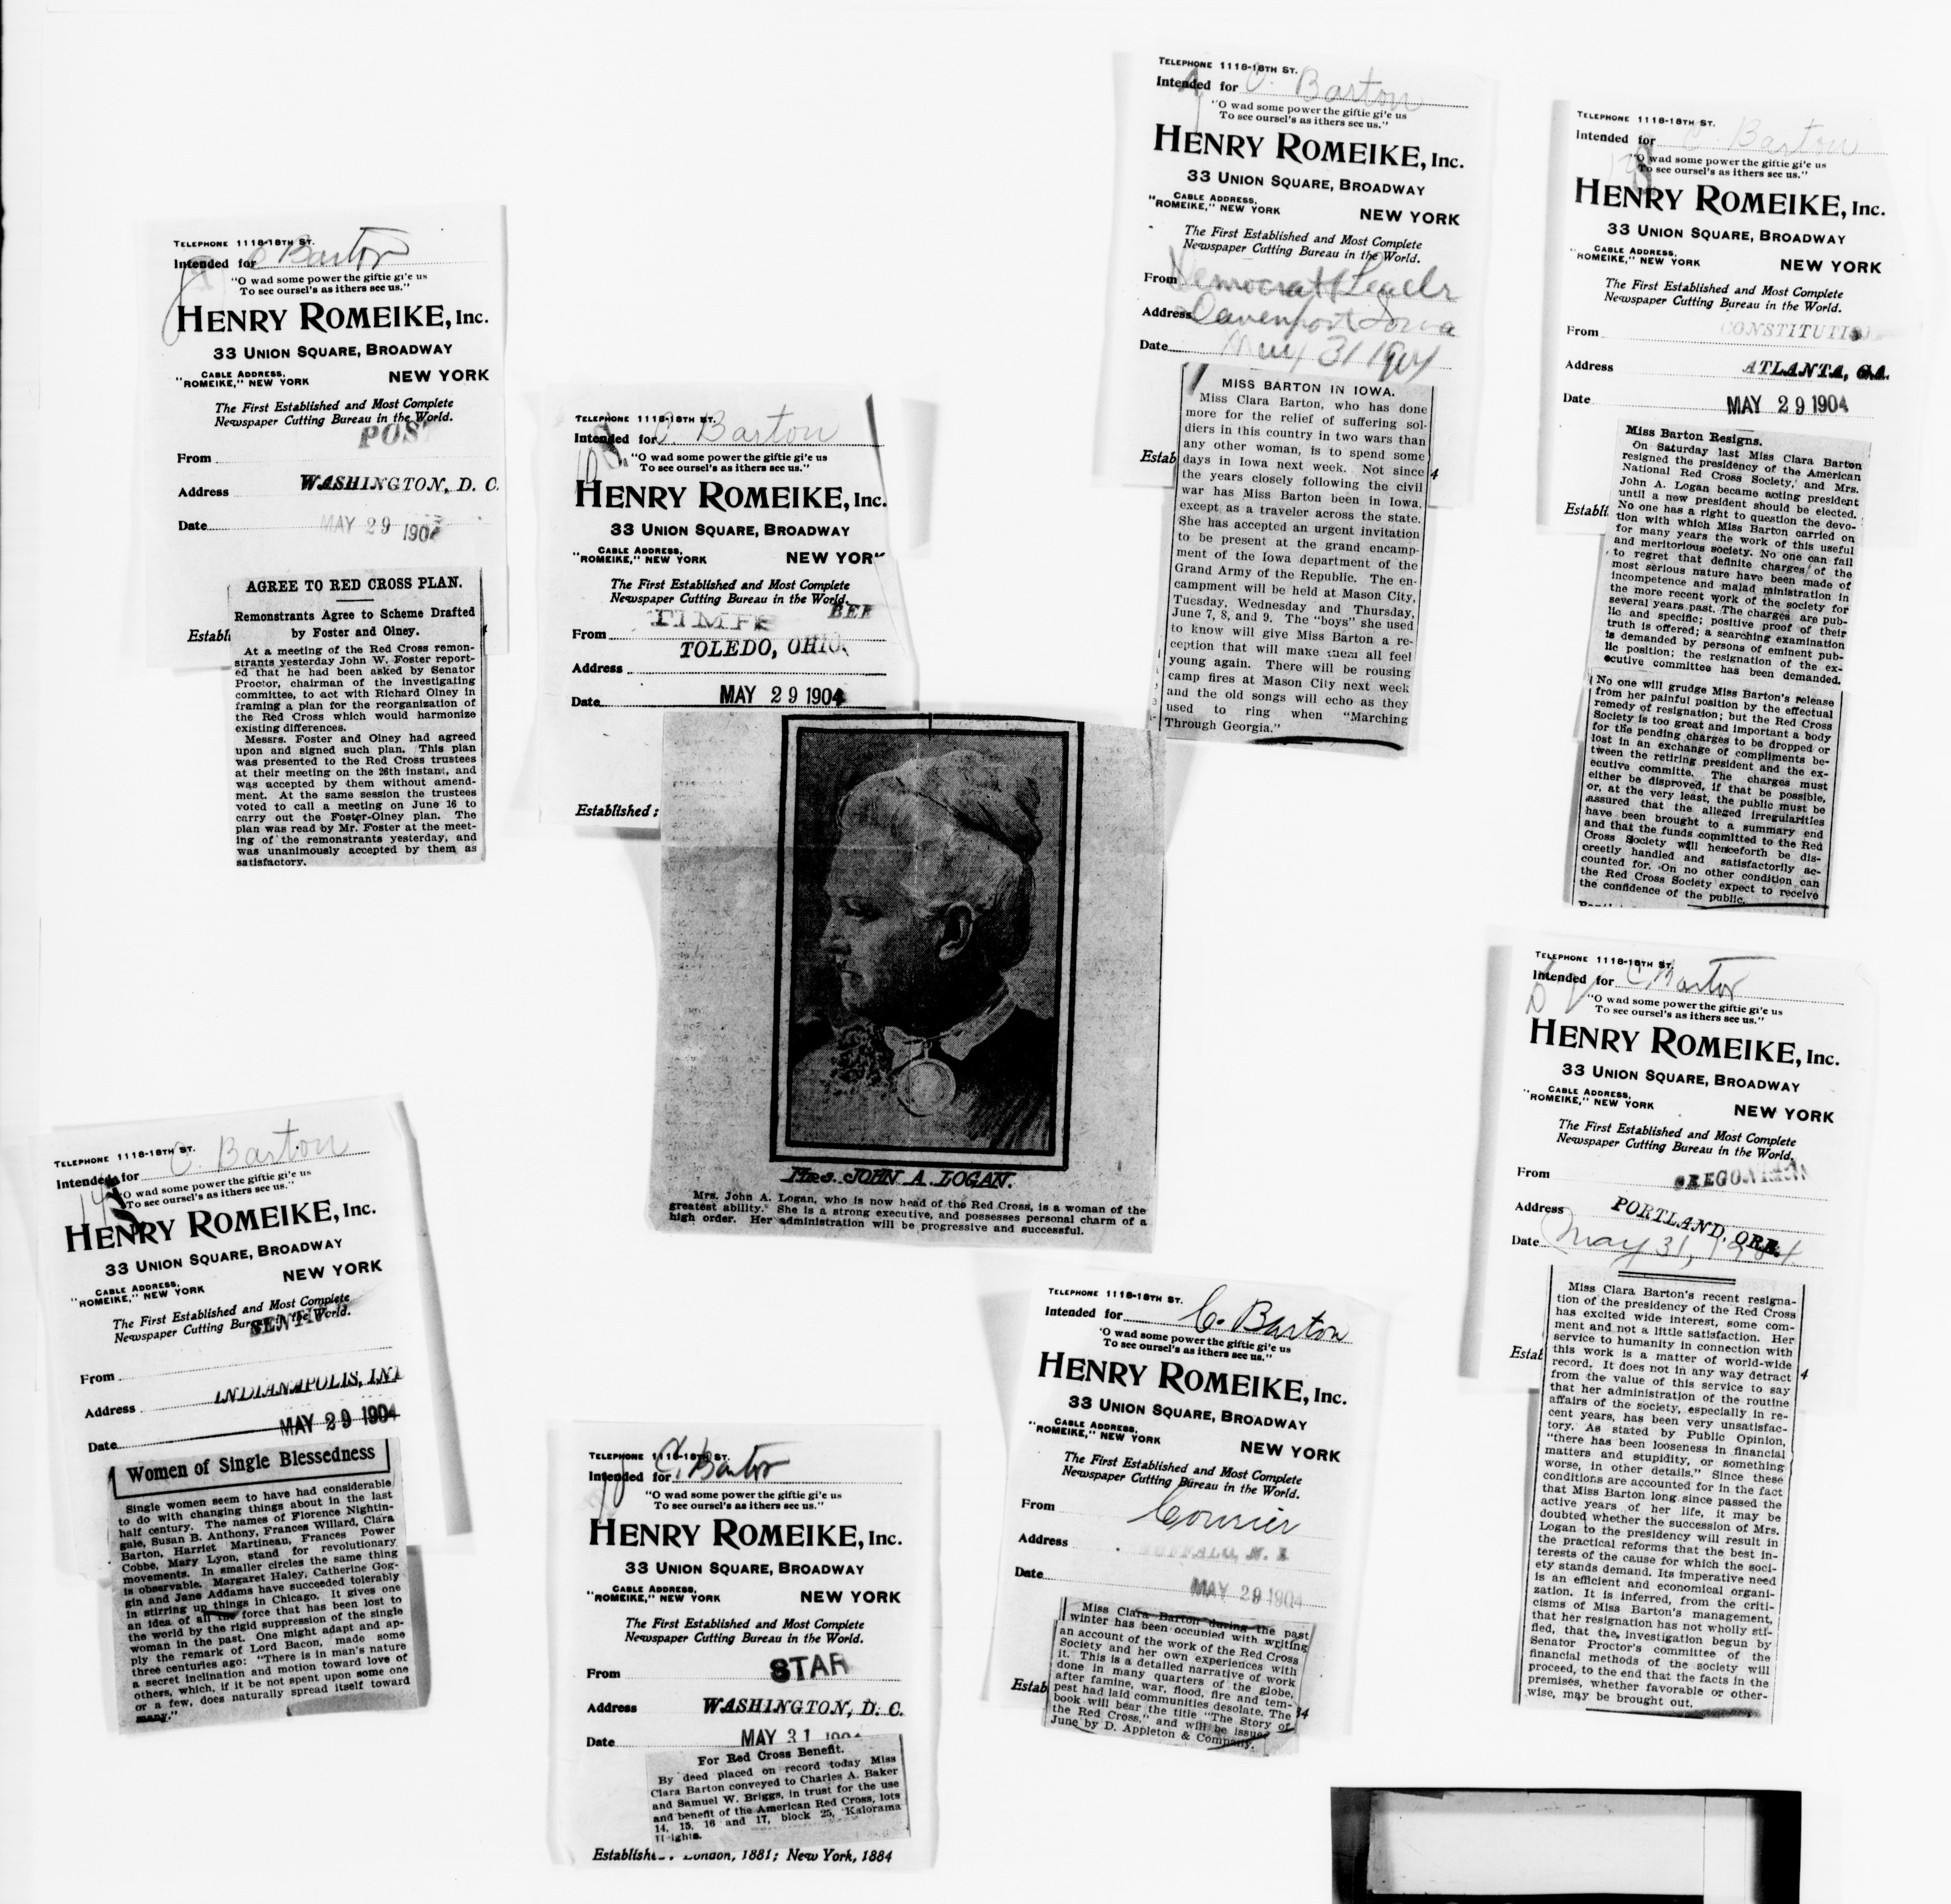 TELEPHONE 1118-18TH ST.
Intended for C Barton
"O wad some power the giftie gi'e us
To see oursel's as ithers see us."
HENRY ROMEIKE, Inc.
33 UNION SQUARE, BROADWAY
CABLE ADDRESS,
"ROMEIKE," NEW YORK
NEW YORK
The First Established and Most Complete
Newspaper Cutting Bureau in the World.
POST
From
Address WASHINGTON, D. C.
Date MAY 29 1904
AGREE TO RED CROSS PLAN.
Remonstrants Agree to Scheme Drafted
by Foster and Olney.
At a meeting of the Red Cross remon-
strants yesterday John W. Foster report-
ed that he had been asked by Senator
Proctor, chairman of the investigating
committee, to act with Richard Olney in
framing a plan for the reorganization of
the Red Cross which would harmonize
existing differences.
Messrs. Foster and Olney had agreed
upon and signed such plan. This plan
was presented to the Red Cross trustees
at their meeting on the 26th instant, and
was accepted by them without amend-
ment. At the same session the trustees
voted to call a meeting on June 16 to
carry out the Foster-Olney plan. The
plan was read by Mr. Foster at the meet-
ing of the remonstrants yesterday, and
was unanimously accepted by them as
satisfactory.
TELEPHONE 1118-18TH ST.
Intended for C. Barton
"O wad some power the giftie gi'e us
To see oursel's as ithers see us."
HENRY ROMEIKE, Inc.
33 UNION SQUARE, BROADWAY
CABLE ADDRESS,
"ROMEIKE," NEW YORK
NEW YORK
The First Established and Most Complete
Newspaper Cutting Bureau in the World.
TIMES BEE
From
TOLEDO, OHIO
Address
Date MAY 29 1904
Established:
Mrs. JOHN A. LOGAN.
Mrs. John A. Logan, who is now head of the Red Cross, is a woman of the
greatest ability. She is a strong executive, and possesses personal charm of a
high order. Her administration will be progressive and successful.
TELEPHONE 1118-18TH ST.
Intended for C. Barton
"O wad some power the giftie gi'e us
To see oursel's as ithers see us."
HENRY ROMEIKE, Inc.
33 UNION SQUARE, BROADWAY
CABLE ADDRESS,
"ROMEIKE," NEW YORK
NEW YORK
The First Established and Most Complete
Newspaper Cutting Bureau in the World.
From Democrat Leader
Address Davenport Iowa
Date May 31 1904
MISS BARTON IN IOWA.
Miss Clara Barton, who has done
more for the relief of suffering sol-
diers in this country in two wars than
any other woman, is to spend some
days in Iowa next week. Not since
the years closely following the civil
war has Miss Barton been in Iowa,
except as a traveler across the state.
She has accepted an urgent invitation
to be present at the grand encamp-
ment of the Iowa department of the
Grand Army of the Republic. The en-
campment will be held at Mason City,
Tuesday, Wednesday and Thursday,
June 7, 8, and 9. The "boys" she used
to know will give Miss Barton a re-
ception that will make them all feel
young again. There will be rousing
camp fires at Mason City next week
and the old songs will echo as they
used to ring when "Marching
Through Georgia."
TELEPHONE 1118-18TH ST.
Intended for C Barton
"O wad some power the giftie gi'e us
To see oursel's as ithers see us."
HENRY ROMEIKE, Inc.
33 UNION SQUARE, BROADWAY
CABLE ADDRESS,
"ROMEIKE," NEW YORK
NEW YORK
The First Established and Most Complete
Newspaper Cutting Bureau in the World.
From CONSTITUTION
Address ATLANTA, GA.
Date MAY 29 1904
Miss Barton Resigns.
On Saturday last Miss Clara Barton
resigned the presidency of the American
National Red Cross Society, and Mrs.
John A. Logan became acting president
until a new president should be elected.
No one has a right to question the devo-
tion with which Miss Barton carried on
for many years the work of this useful
and meritorious society. No one can fail
to regret that definite charges of the
most serious nature have been made of
incompetence and malad ministration in
the more recent work of the society for
several years past. The charges are pub-
lic and specific; positive proof of their
truth is offered; a searching examination
is demanded by persons of eminent pub-
lic position; the resignation of the ex-
ecutive committee has been demanded.
No one will grudge Miss Barton's release
from her painful position by the effectual
remedy of resignation; but the Red Cross
Society is too great and important a body
for the pending charges to be dropped or
lost in an exchange of compliments be-
tween the retiring president and the ex-
ecutive committe. The charges must
either be disproved, if that be possible,
or, at the very least, the public must be
assured that the alleged irregularities
have been brought to a summary end
and that the funds committed to the Red
Cross Society will henceforth be dis-
creetly handled and satisfactorily ac-
counted for. On no other condition can
the Red Cross Society expect to receive
the confidence of the public.
TELEPHONE 1118-18TH ST.
Intended for C. Barton
"O wad some power the giftie gi'e us
To see oursel's as ithers see us."
HENRY ROMEIKE, Inc.
33 UNION SQUARE, BROADWAY
CABLE ADDRESS,
"ROMEIKE," NEW YORK
NEW YORK
The First Established and Most Complete
Newspaper Cutting Bureau in the World.
SENTINEL
From
Address INDIANAPOLIS, IND
Date MAY 29 1904
Women of Single Blessedness
Single women seem to have had considerable
to do with changing things about in the last
half century. The names of Florence Nightin-
gale, Susan B. Anthony, Frances Willard, Clara
Barton, Harriet Martineau, Frances Power
Cobbe, Mary Lyon, stand for revolutionary
movements. In smaller circles the same thing
is observable. Margaret Haley, Catherine Gog-
gin and Jane Addams have succeeded tolerably
in stirring up things in Chicago. It gives one
an idea of all the force that has been lost to
the world by the rigid suppression of the single
woman in the past. One might adapt and ap-
ply the remark of Lord Bacon, made some
three centuries ago: "There is in man's nature
a secret inclination and motion toward love of
others, which, if it be not spent upon some one
or a few, does naturally spread itself toward
many."
TELEPHONE 1118-18TH ST.
Intended for C. Barton
"O wad some power the giftie gi'e us
To see oursel's as ithers see us."
HENRY ROMEIKE, Inc.
33 UNION SQUARE, BROADWAY
CABLE ADDRESS,
"ROMEIKE," NEW YORK
NEW YORK
The First Established and Most Complete
Newspaper Cutting Bureau in the World.
From STAR
Address WASHINGTON, D. C.
Date MAY 31 1904
For Red Cross Benefit.
By deed placed on record today Miss
Clara Barton conveyed to Charles A. Baker
and Samuel W. Briggs, in trust for the use
and benefit of the American Red Cross, lots
14, 15, 16 and 17, block 25, Kalorama
Heights.
Established: London, 1881; New York, 1884
TELEPHONE 1118-18TH ST.
Intended for C. Barton
"O wad some power the giftie gi'e us
To see oursel's as ithers see us."
HENRY ROMEIKE, Inc.
33 UNION SQUARE, BROADWAY
CABLE ADDRESS,
"ROMEIKE," NEW YORK
NEW YORK
The First Established and Most Complete
Newspaper Cutting Bureau in the World.
From Courier
Address BUFFALO, N. Y.
Date MAY 29 1904
Miss Clara Barton during the past
winter has been occupied with writing
an account of the work of the Red Cross
Society and her own experiences with
it. This is a detailed narrative of work
done in many quarters of the globe,
after famine, war, flood, fire and tem-
pest had laid communities desolate. The
book will bear the title "The Story of
the Red Cross," and will be issued
June by D. Appleton & Company.
TELEPHONE 1118-18TH ST.
Intended for C. Barton
"O wad some power the giftie gi'e us
To see oursel's as ithers see us."
HENRY ROMEIKE, Inc.
33 UNION SQUARE, BROADWAY
CABLE ADDRESS,
"ROMEIKE," NEW YORK
NEW YORK
The First Established and Most Complete
Newspaper Cutting Bureau in the World.
From OREGONIAN
Address PORTLAND, ORE.
Date May 31, 1904
Miss Clara Barton's recent resigna-
tion of the presidency of the Red Cross
has excited wide interest, some com-
ment and not a little satisfaction. Her
service to humanity in connection with
this work is a matter of world-wide
record. It does not in any way detract
from the value of this service to say
that her administration of the routine
affairs of the society, especially in re-
cent years, has been very unsatisfac-
tory. As stated by Public Opinion,
"there has been looseness in financial
matters and stupidity, or something
worse, in other details." Since these
conditions are accounted for in the fact
that Miss Barton long since passed the
active years of her life, it may be
doubted whether the succession of Mrs.
Logan to the presidency will result in
the practical reforms that the best in-
terests of the cause for which the soci-
ety stands demand. Its imperative need
is an efficient and economical organi-
zation. It is inferred, from the criti-
cisms of Miss Barton's management,
that her resignation has not wholly sti-
fled, that the investigation begun by
Senator Proctor's committee of the
financial methods of the society will
proceed, to the end that the facts in the
premises, whether favorable or other-
wise, may be brought out.